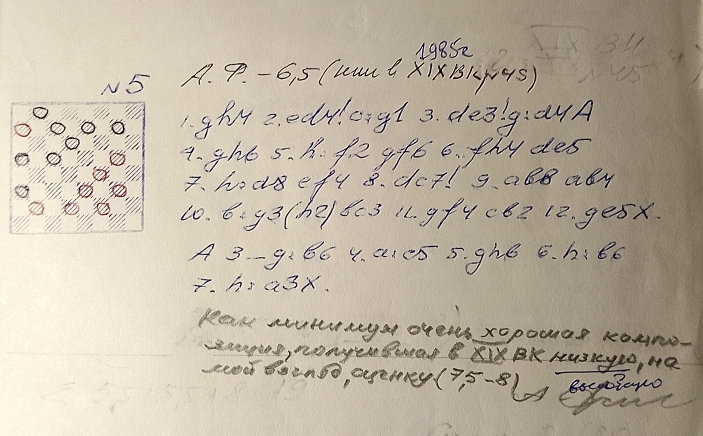 1985г
N 5 А. Ф. – 6,5 (или в XIX ВК, N45)
1. gh4 2. ed4! c:g1 3. de3! g:d4 A
4. gh6 5. h:f2 gf6 6. fh4 de5
7. h:d8 ef4 8. dc7! 9. ab8 ab4
10. b:g3(h2) bc3 11. gf4 cb2 12. ge5X.
A 3. – g:b6 4. a:c5 5. ghb 6. h:b6
7. h:a3X.
Как минимум очень хорошая компо-
зиция, получившая в XIX ВК низкую, на
мой взгляд, оценку (7,5–8)